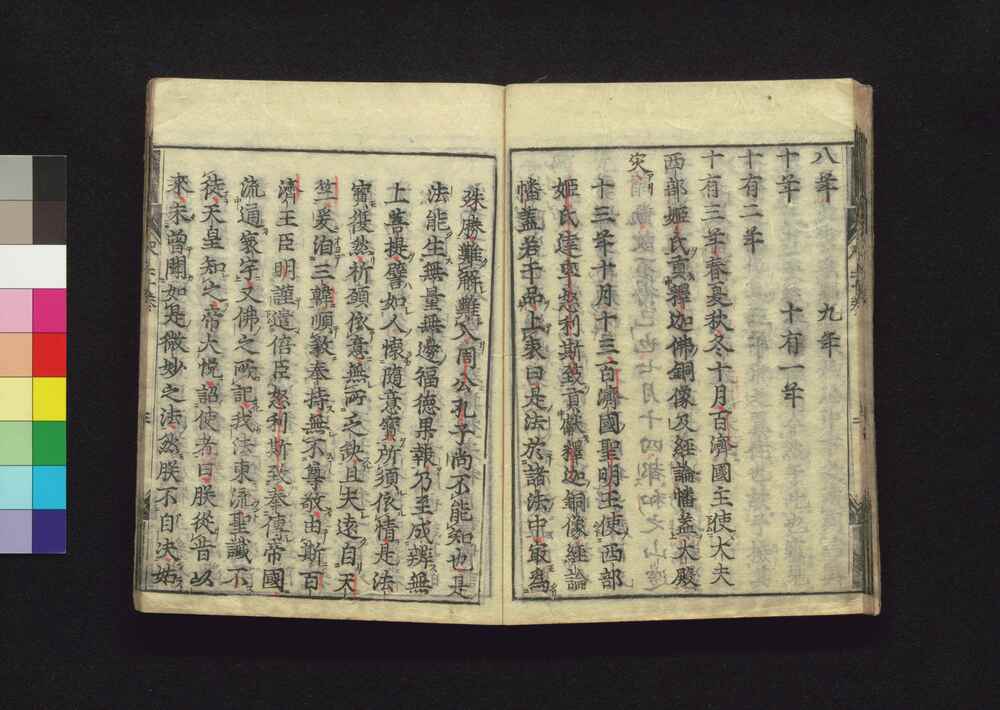 八年 九年
十年 十有一年
十有二年
十有三年春夏秋冬十月百濟國王使大夫
西部姫氏貢釋迦佛銅像及經論幡蓋大殿
災
十三年十月十三百濟國聖明王使西部
姫氏達率怒利斯致貢獻釋迦銅像經論
幡蓋若干品上表曰是法於諸法中最為
殊勝難解難入周公孔子尚不能知也是
法能生無量無邊福德果報乃至成辨無
上菩提譬如人懷隨意寶所須依情是法
寶復然祈願依意無所乏缺且夫遠自天
竺爰洎三韓順教奉持無不尊敬由斯百
濟王臣明謹遣倍臣怒利斯致奉傳帝國
流通寰宇又佛之所記我法東流聖讖不
徒天皇知之帝大悦詔使者曰朕從昔以
來未曽聞如是微妙之法然朕不自決始